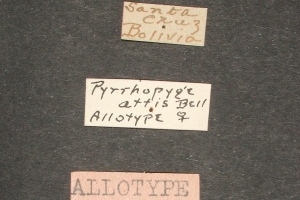 Santa
Cruz
Bolivia
Pyrrhopyge
attis Bell
Allotype ♀
ALLOTYPE